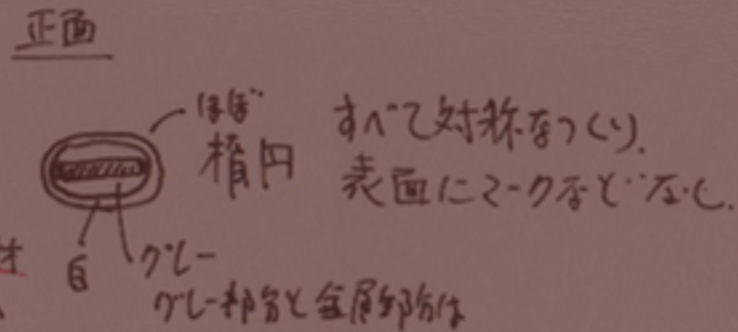 正面
ほぼ
楕円
すべて対称なつくり.
表面にマークなどなし.
材
白
グレー
グレー部分と金属部分は